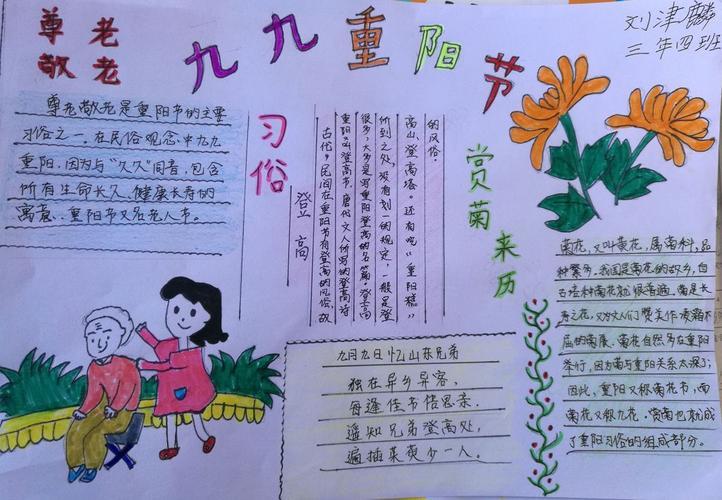 尊老
敬老
九九重阳节
刘津麟
三年四班
尊老敬老是重阳节的主要
习俗之一,在民俗观念中九九
重阳,因为与“久久”同音,包含
所有生命长久、健康长寿的
寓意。重阳节又名老人节。
习俗
登高
古代,民间在重阳节有登高的风俗,故
重阳又叫登高节。唐代文人所写的登高诗
很多,大多是写重阳登高的名篇。登高
所到之处,没有划一的规定,一般是登
高山、登高塔。还有吃“重阳糕”
的风俗。
赏菊来历
菊花,又叫黄花,属菊科,品
种繁多。我国是菊花的故乡,自
古培种菊花就很普遍。菊是长
寿之花,又为文人们赞美作凌霜不
屈的,菊花自然多在重阳
举行,因为菊与重阳关系太深了;
因此,重阳又称菊花节,而
菊花又称九花。赏菊也就成
了重阳习俗的组成部分。
九月九日忆山东兄弟
独在异乡异客,
每逢佳节倍思亲.
遥知兄弟登高处,
遍插茱萸少一人。